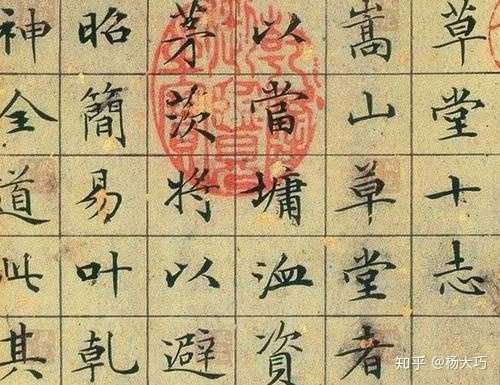 草堂十志
嵩山草堂者
以當墉洫資
茅茨將以避
昭簡易叶乹
神全道此其
知乎 @杨大巧